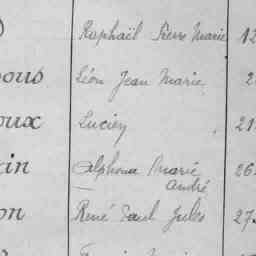 Raphaël Pierre Marie 12
ous Léon Jean Marie 2
oux Lucien 21
in Alphonse Marie 26
André
on René Paul Jules 27